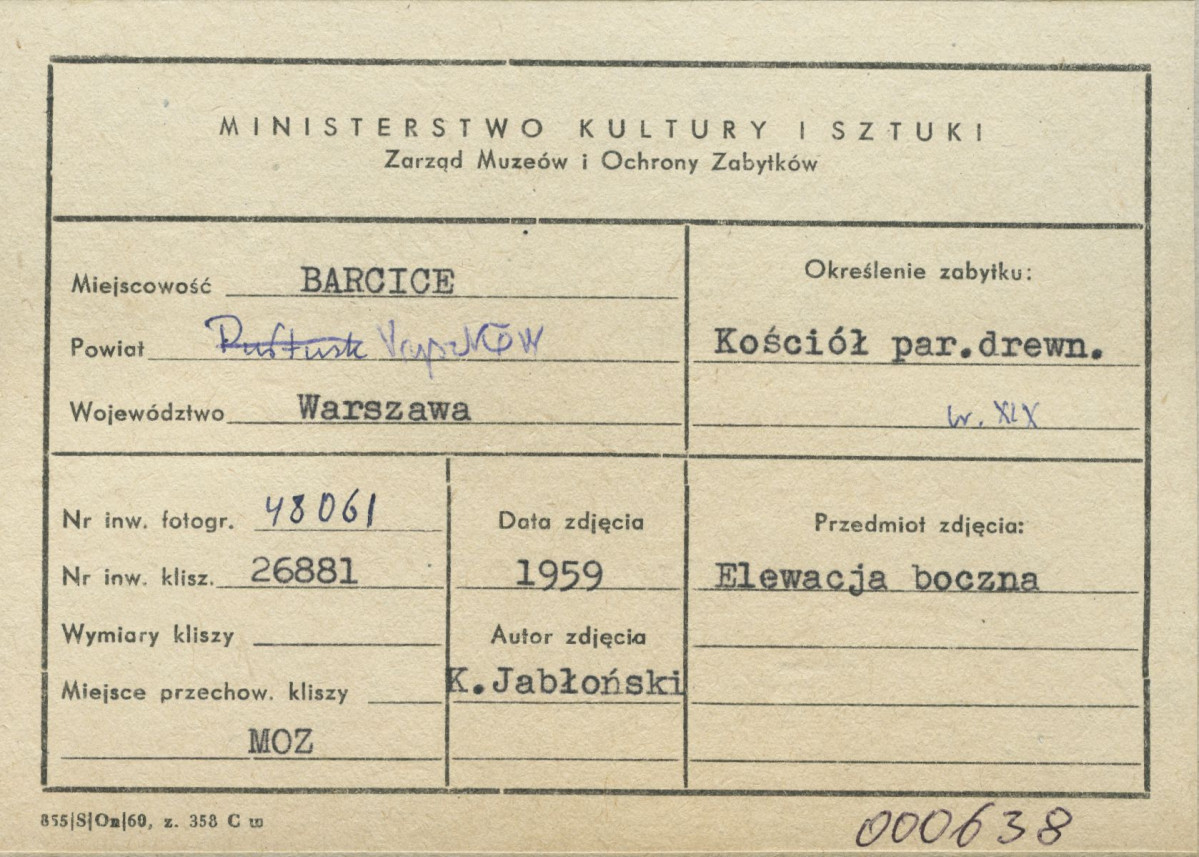 MINISTERSTWO KULTURY I SZTUKI
Zarząd Muzeów i Ochrony Zabytków
Miejscowość BARCICE
Powiat Pułtusk Wyszków
Województwo Warszawa
Określenie zabytku:
Kościół par.drewn.
w. XIX
Nr inw. fotogr. 48061
Nr inw. klisz. 26881
Wymiary kliszy
Miejsce przechow. kliszy
MOZ
Data zdjęcia
1959
Autor zdjęcia
K.Jabłoński
Przedmiot zdjęcia:
Elewacja boczna
855|S|On|60, z. 358 C w
000638